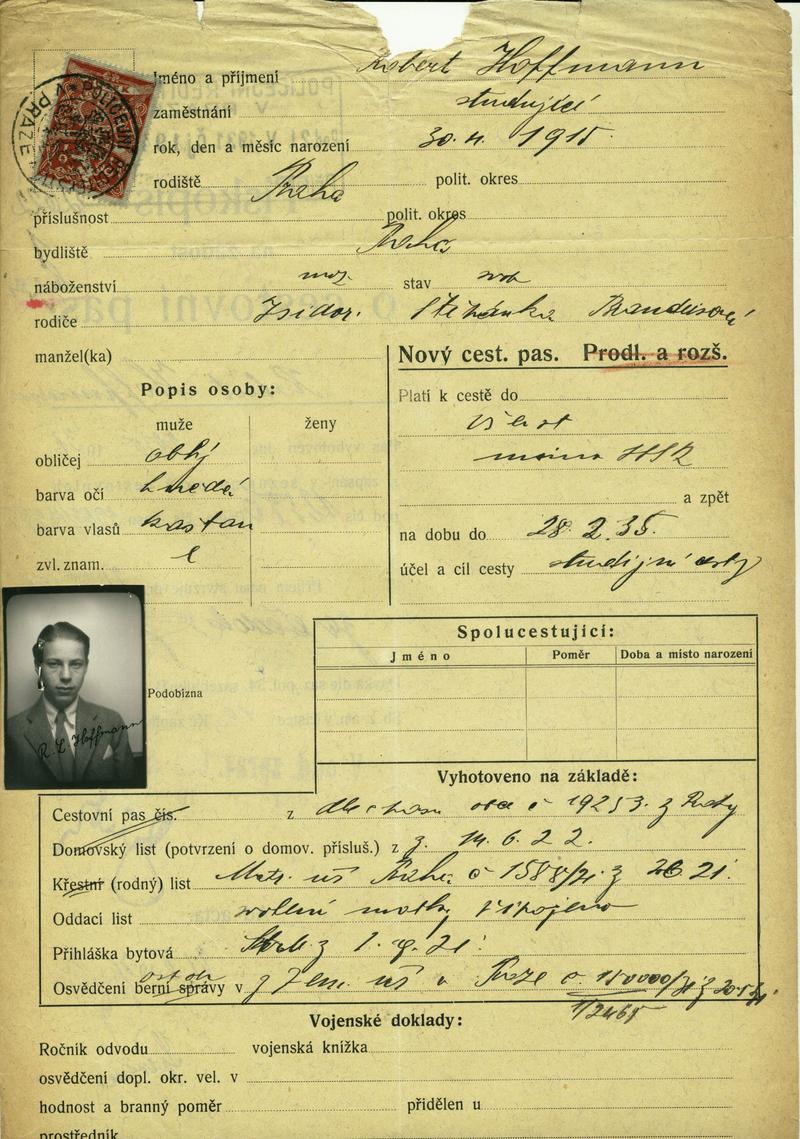 Jméno a příjmení Robert Hoffmann
zaměstnání studující
rok, den a měsíc narození 30. 1915
rodiště Praha polit. okres
příslušnost polit. okres
bydliště Praha
náboženství moz. stav svob
rodiče Isidor. Štěpánka Brandeisová
manžel(ka)
Nový cest. pas. Prodl. a rozš.
Popis osoby:
muže ženy
obličej oblý
barva očí hnědá
barva vlasů kaštan
zvl. znam.
Platí k cestě do
všech st
mimo SSR
a zpět
na dobu do 28. 2. 35.
účel a cíl cesty studijní cesty
Podobizna
R. L. Hoffmann
Spolucestující:
Jméno Poměr Doba a místo narození
Vyhotoveno na základě:
Cestovní pas čís. z otce č 19253. z Prahy
Domovský list (potvrzení o domov. přísluš.) z 14. 6. 22.
Křestní (rodný) list Matr. úř. Praha č 1588/21 z 21.
Oddací list svolení matky připojeno
Přihláška bytová z 1. 9. 21.
Osvědčení berní správy v z Zem. úř. v Praze č. 150000/31 z 20.5.31
1/2465
Vojenské doklady:
Ročník odvodu vojenská knížka
osvědčení dopl. okr. vel. v
hodnost a branný poměr přidělen u
prostředník
POLICEJNÍ ŘEDITELSTVÍ V PRAZE